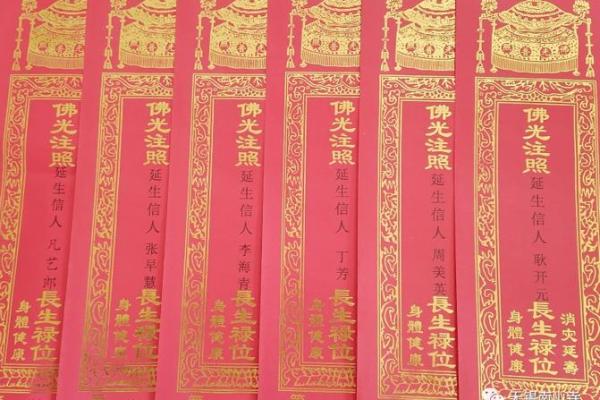 佛光注照
延生信人 凡艺郎
長生禄位
身體健康
佛光注照
延生信人 张早慧
長生禄位
身體健康
佛光注照
延生信人 李海青
長生禄位
身體健康
佛光注照
延生信人 丁芳
長生禄位
身體健康
佛光注照
延生信人 周美英
長生禄位
身體健康
佛光注照
延生信人 耿开元
長生禄位
消灾延壽
身體健康